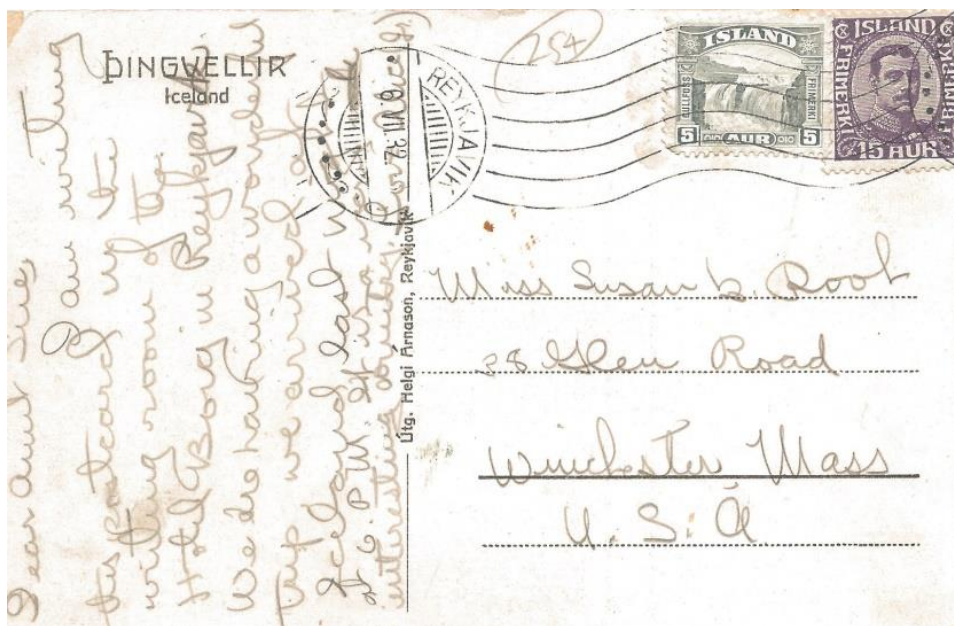 ÞINGWELLIR
Iceland
REYKJAVIK
6. VII. 32.
254
ISLAND
GULLFOSS
FRIMERKI
5 AUR 5
ISLAND
FRIMERKI
FRIMERKI
15 AUR
Útg. Helgi Árnason, Reykjavík
Dear Aunt Sue,
I am writing
this postcard up in the
writing room of the
Hotel Borg in Reykjavik.
We are having a wonderful
trip we arrived at
Iceland last night
at 6 P.M. It is a very
interesting
Miss Susan B. Root
28 Glen Road
Winchester Mass
U. S. A